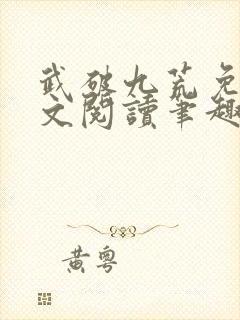 武破九荒免
文閱讀筆趣
黃粵